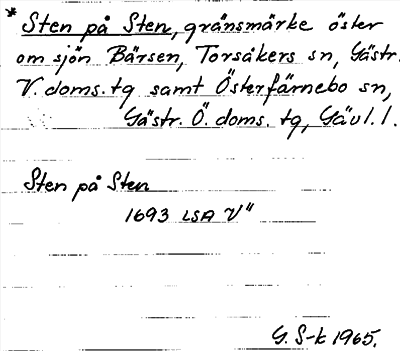 * Sten på Sten, gränsmärke öster
om sjön Bärsen, Torsåkers sn, Gästr.
V. doms. tg samt Österfärnebo sn,
Gästr. Ö. doms. tg, Gävl. l.
Sten på Sten
1693 LSA V"
G. S-k 1965.